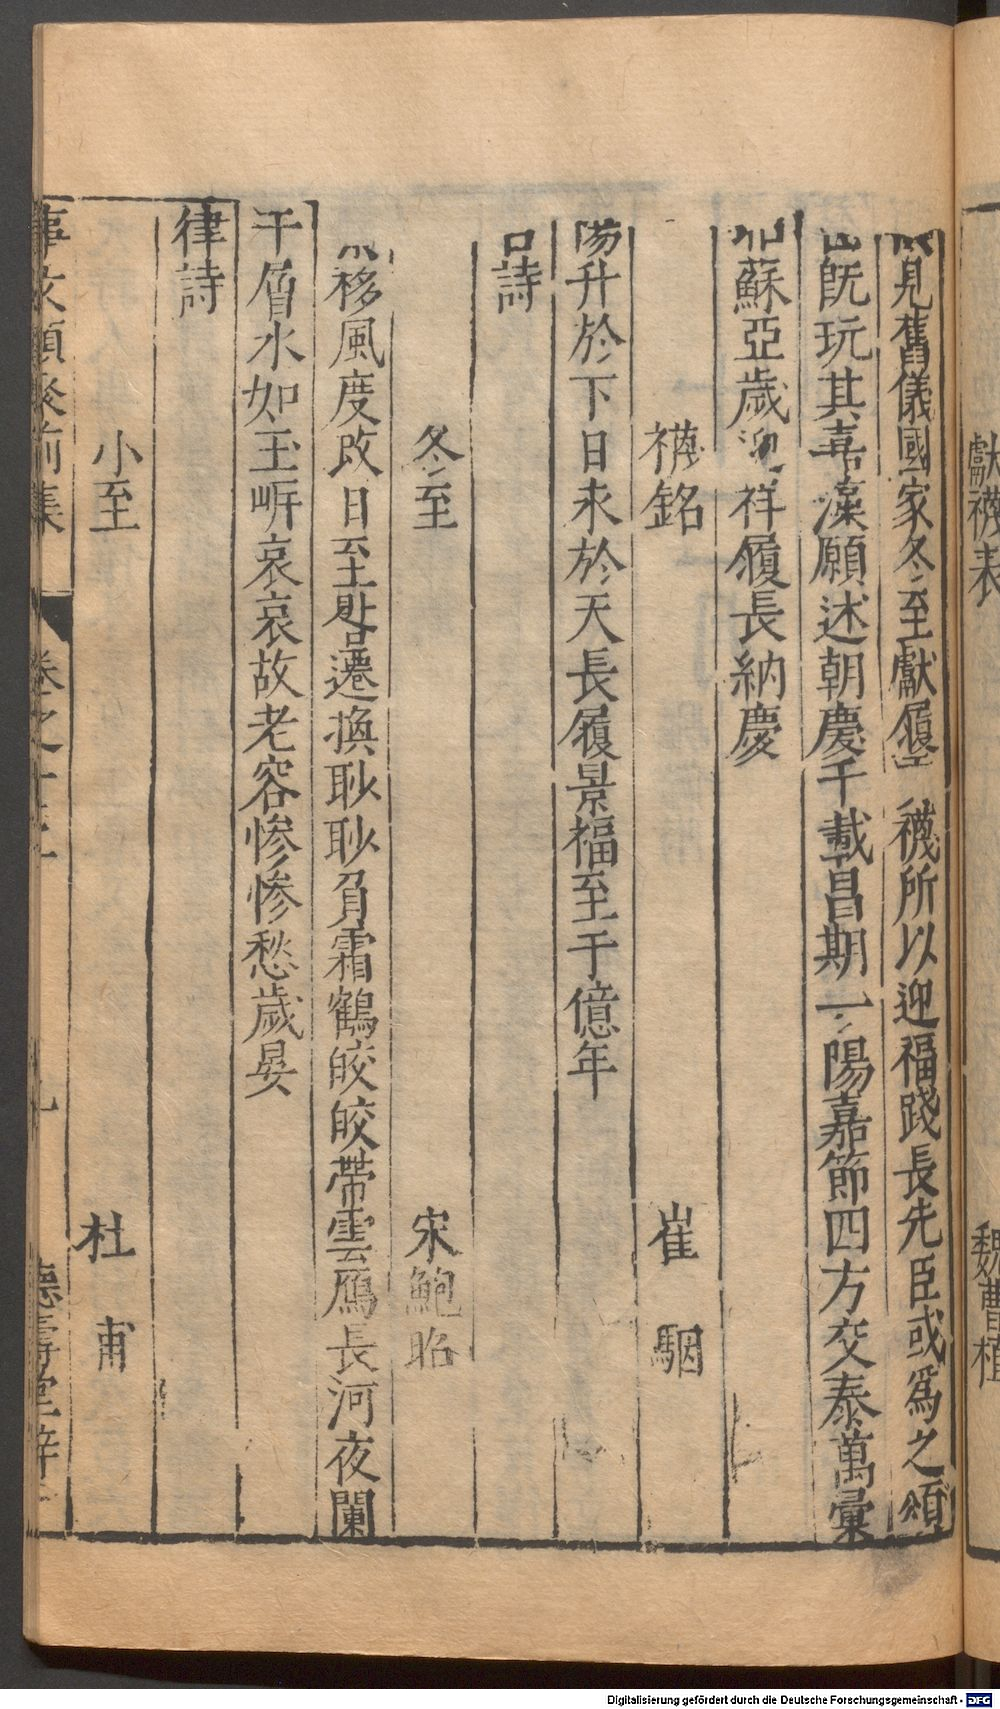 見舊儀國家冬至獻履 襪所以迎福踐長先臣或爲之頌
旣玩其嘉藻願述朝慶千載昌期一陽嘉節四方交泰萬彙
蘇亞歲迎祥履長納慶
襪銘 崔駰
陽升於下日永於天長履景福至于億年
詩
冬至 宋鮑昭
移風度改日至晷遷換眇眇負霜鶴皎皎帶雲鴈長河夜闌
干層水如玉岍哀哀故老容慘慘愁歲晏
律詩
小至 杜甫
事文類聚前集 卷之十二 九 德壽堂梓
獻襪表 魏曹植
Digitalisierung gefördert durch die Deutsche Forschungsgemeinschaft - DFG